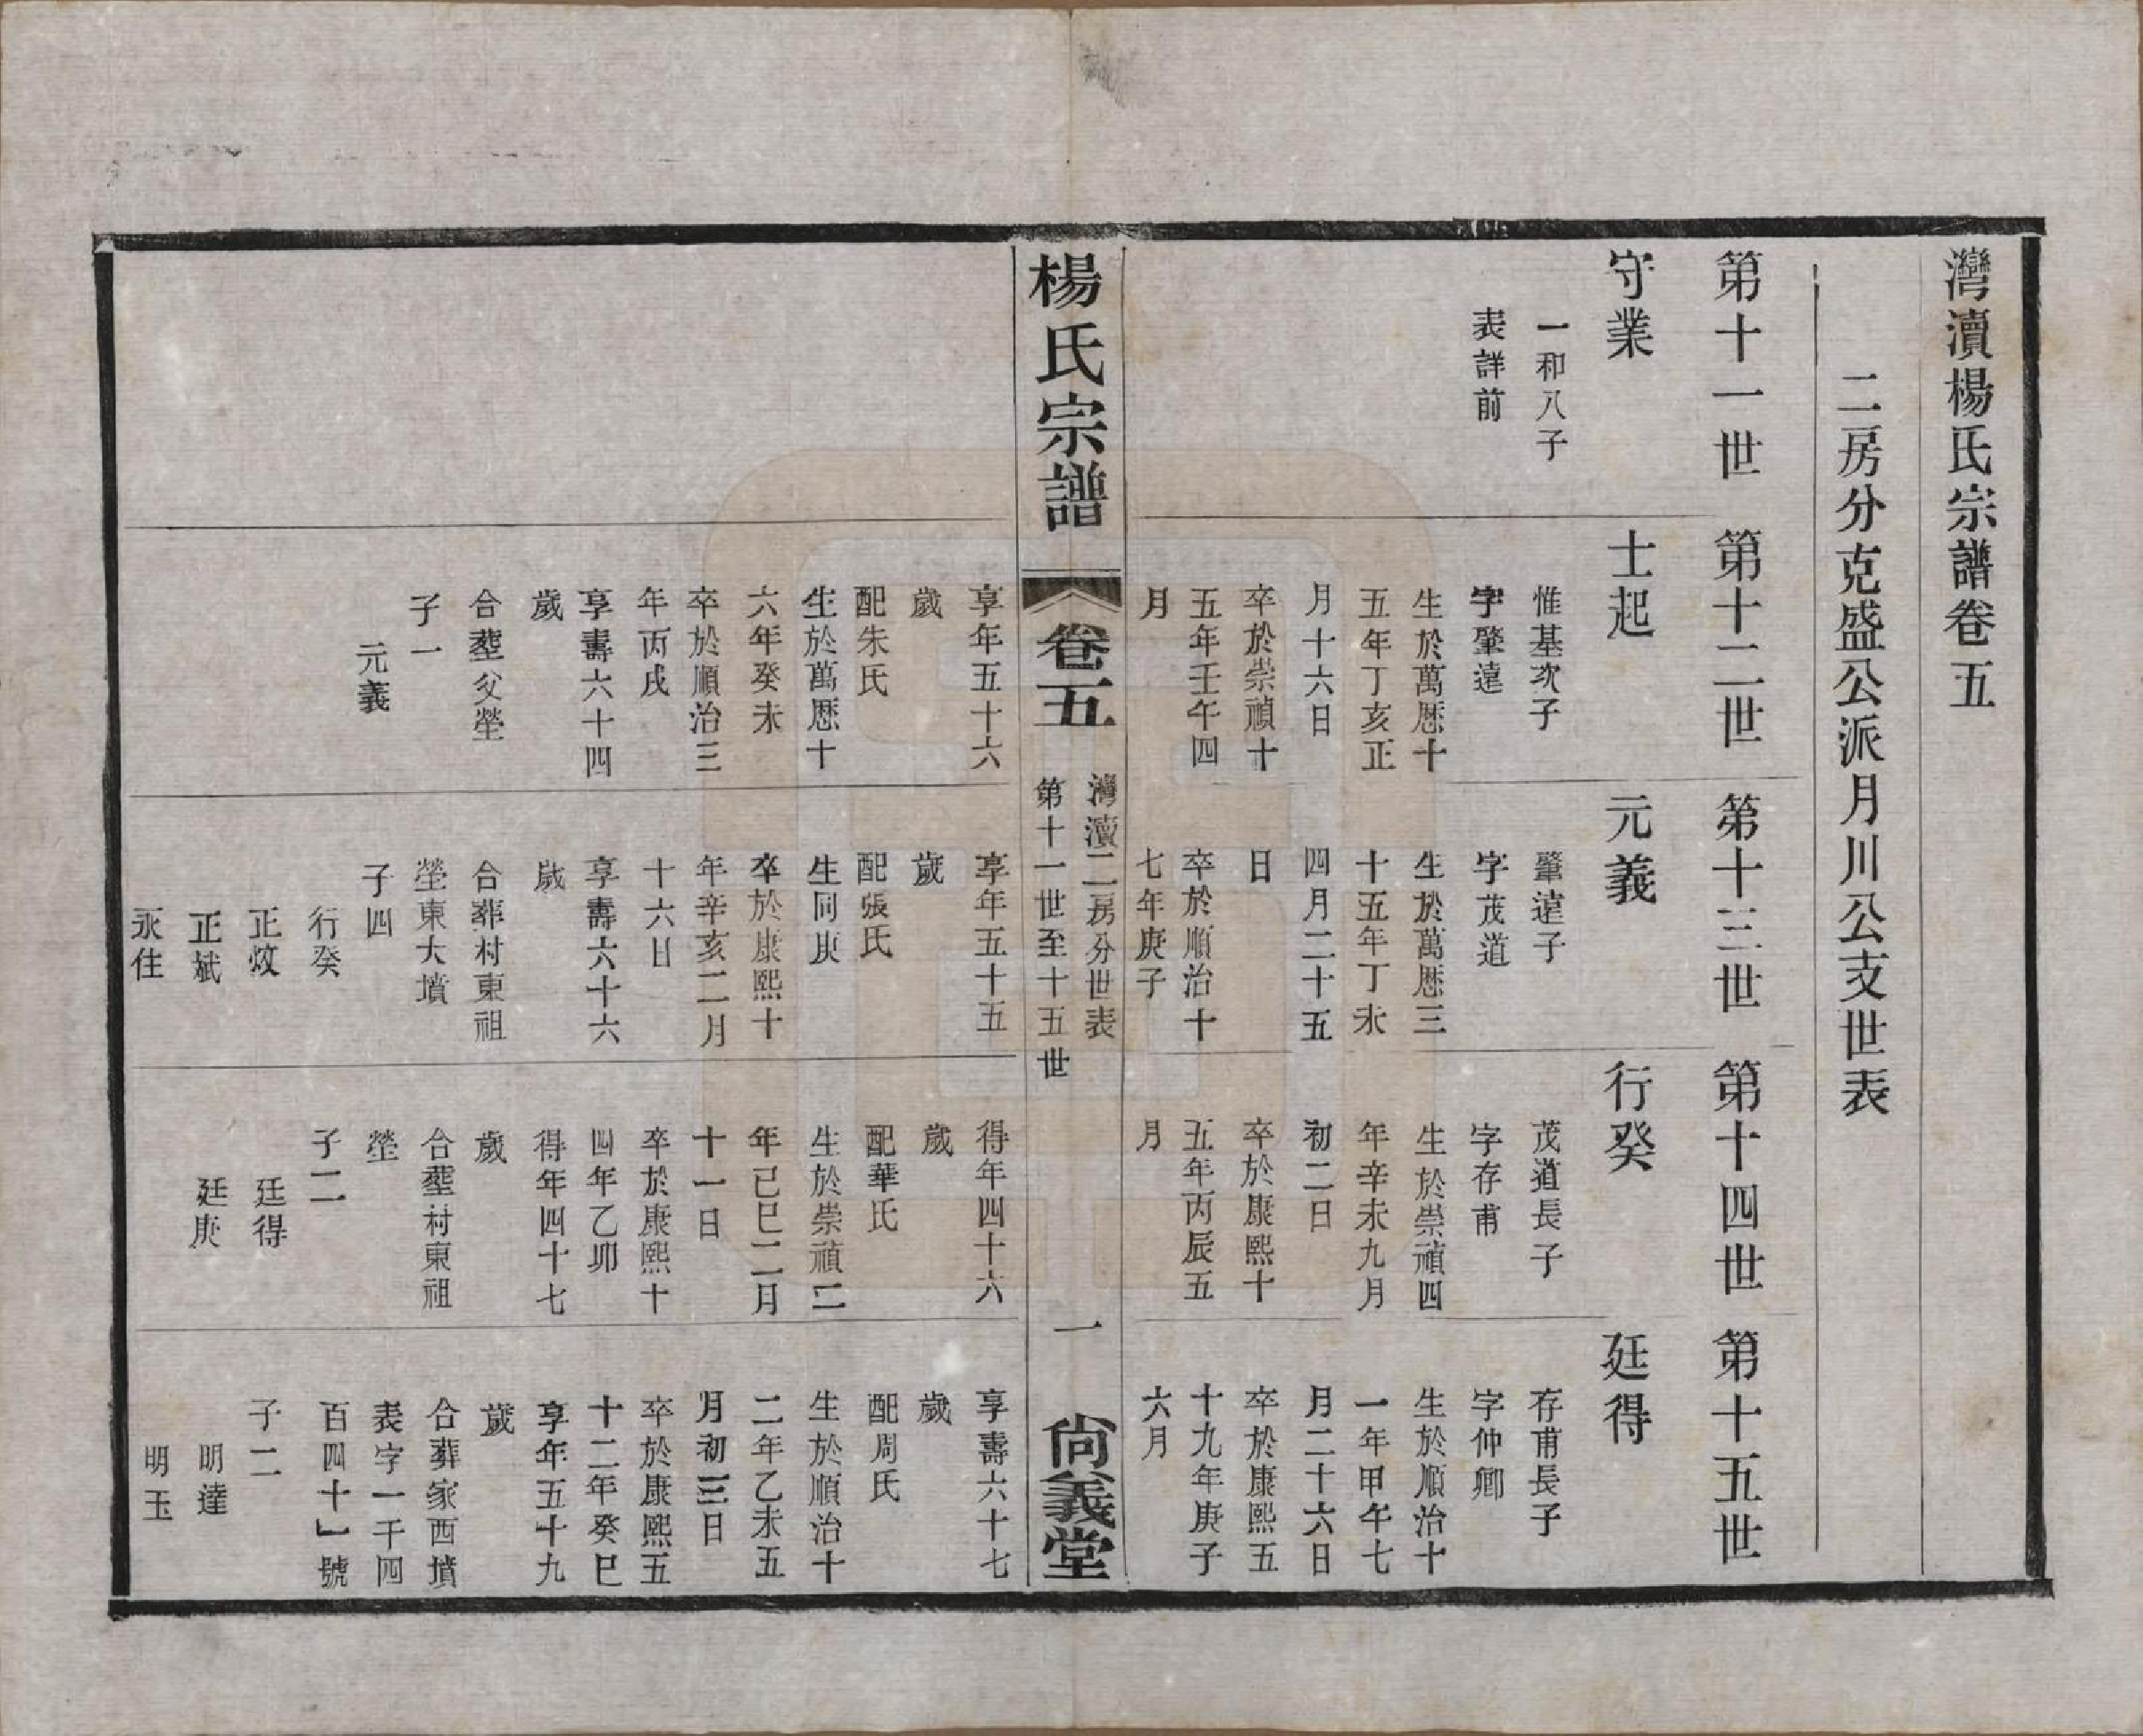 灣瀆楊氏宗譜卷五
二房分克盛公派月川公支世表
第十一世
守業
一和八子
表詳前
第十二世
士起
惟基次子
字肇遠
生於萬厯十
五年丁亥正
月十六日
卒於崇禎十
五年壬午四
月
享年五十六
歲
配朱氏
生於萬厯十
六年癸未
卒於順治三
年丙戌
享壽六十四
歲
合塟父塋
子一
元義
第十三世
元義
肇遠子
字茂道
生於萬厯三
十五年丁未
四月二十五
日
卒於順治十
七年庚子
享年五十五
歲
配張氏
生同庚
卒於康熙十
年辛亥二月
十六日
享壽六十六
歲
合葬村東祖
塋東大墳
子四
行癸
正炆
正斌
永住
第十四世
行癸
茂道長子
字存甫
生於崇禎四
年辛未九月
初二日
卒於康熙十
五年丙辰五
月
得年四十六
歲
配華氏
生於崇禎二
年己巳二月
十一日
卒於康熙十
四年乙卯
得年四十七
歲
合塟村東祖
塋
子二
廷得
廷庚
第十五世
廷得
存甫長子
字仲卿
生於順治十
一年甲午七
月二十六日
卒於康熙五
十九年庚子
六月
享壽六十七
歲
配周氏
生於順治十
二年乙未五
月初三日
卒於康熙五
十二年癸巳
享年五十九
歲
合葬家西墳
表字一千四
百四十一號
子二
明達
明玉
楊氏宗譜
卷五
灣瀆二房分世表
第十一世至十五世
一
尙義堂